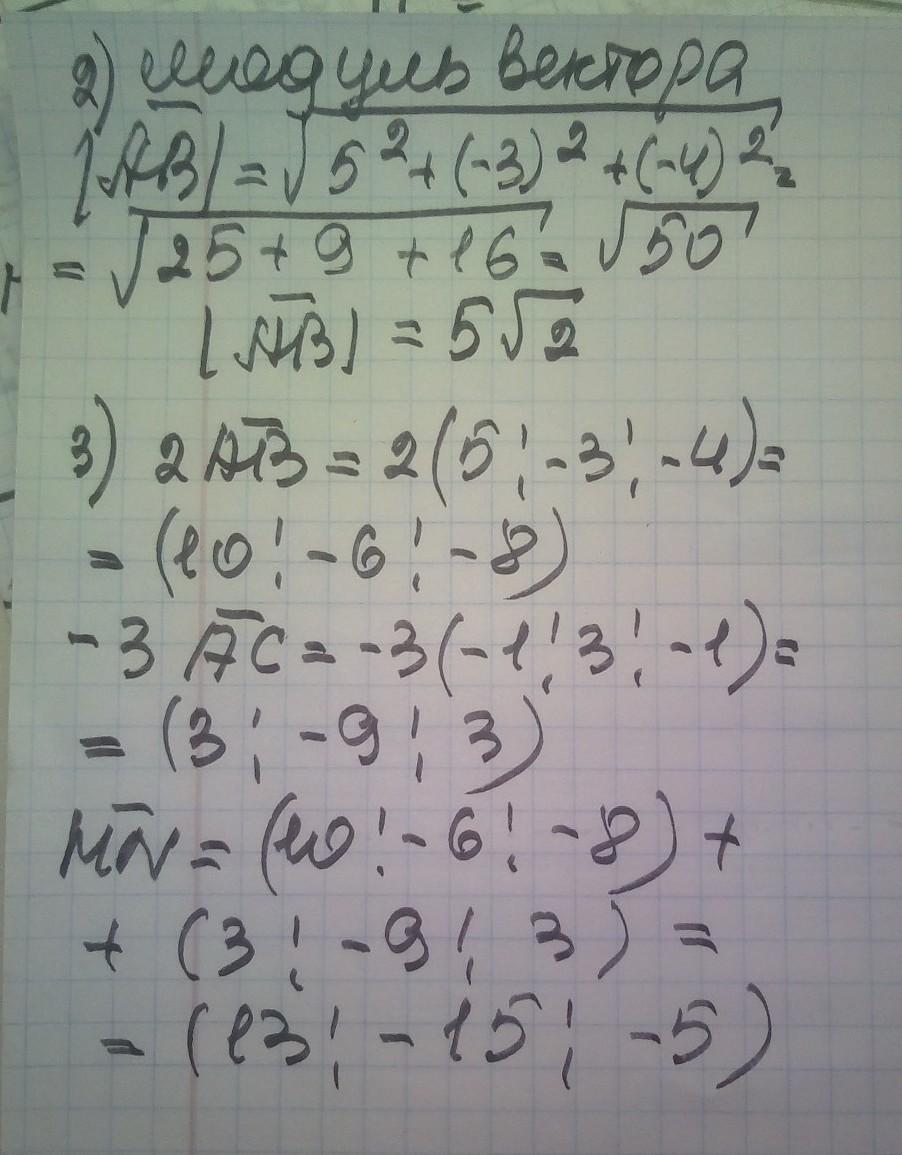 2) Модуль вектора
|AB| = √5² + (-3)² + (-4)² =
= √25 + 9 + 16 = √50
|AB| = 5√2
3) 2AB = 2(5; -3; -4) =
= (10; -6; -8)
-3 AC = -3(-1; 3; -1) =
= (3; -9; 3)
MN = (10; -6; -8) +
+ (3; -9; 3) =
= (13; -15; -5)